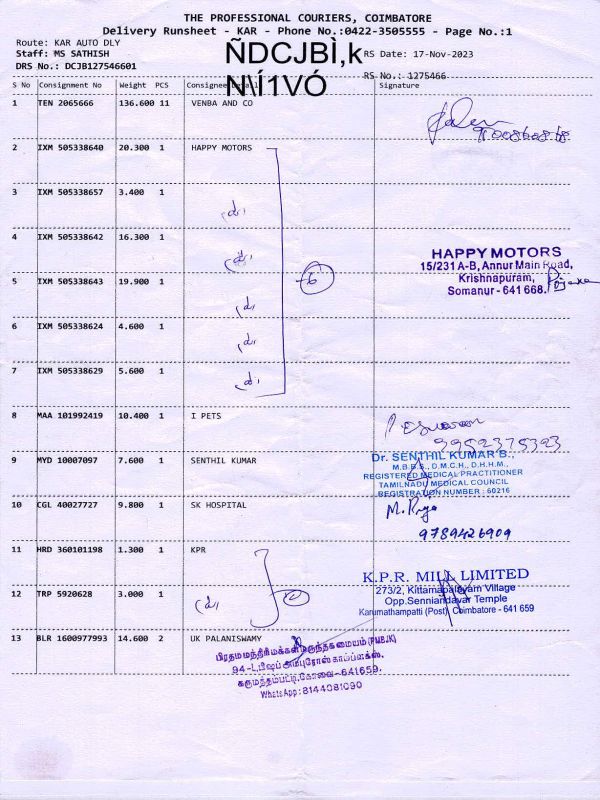 THE PROFESSIONAL COURIERS, COIMBATORE
Delivery Runsheet - KAR - Phone No.:0422-3505555 - Page No.:1
Route: KAR AUTO DLY
Staff: MS SATHISH
DRS No.: DCJB127546601
ÑDCJBÌ,k
RS Date: 17-Nov-2023
RS No.: 1275466
S No Consignment No Weight PCS Consignee Signature
1 TEN 2065666 136.600 11 VENBA AND CO
2 IXM 505338640 20.300 1 HAPPY MOTORS
3 IXM 505338657 3.400 1
4 IXM 505338642 16.300 1
HAPPY MOTORS
15/231 A-B, Annur Main Road,
Krishnapuram,
Somanur - 641 668.
5 IXM 505338643 19.900 1
6 IXM 505338624 4.600 1
7 IXM 505338629 5.600 1
8 MAA 101992419 10.400 1 I PETS
9952375393
9 MYD 10007097 7.600 1 SENTHIL KUMAR
Dr. SENTHIL KUMAR B.,
M.B.B.S., D.M.C.H., D.H.H.M.,
REGISTERED MEDICAL PRACTITIONER
TAMILNADU MEDICAL COUNCIL
REGISTRATION NUMBER : 60216
10 CGL 40027727 9.800 1 SK HOSPITAL
M. Priya
9789426909
11 HRD 360101198 1.300 1 KPR
K.P.R. MILL LIMITED
273/2, Kittampalayam Village
Opp.Senniandavar Temple
Karumathampatti (Post), Coimbatore - 641 659
12 TRP 5920628 3.000 1
13 BLR 1600977993 14.600 2 UK PALANISWAMY
பிரதமமந்திரி மக்கள் மருந்தகமையம் (PMBJK)
கருமத்தம்பட்டி, கோவை - 641659.
WhatsApp: 8144081090